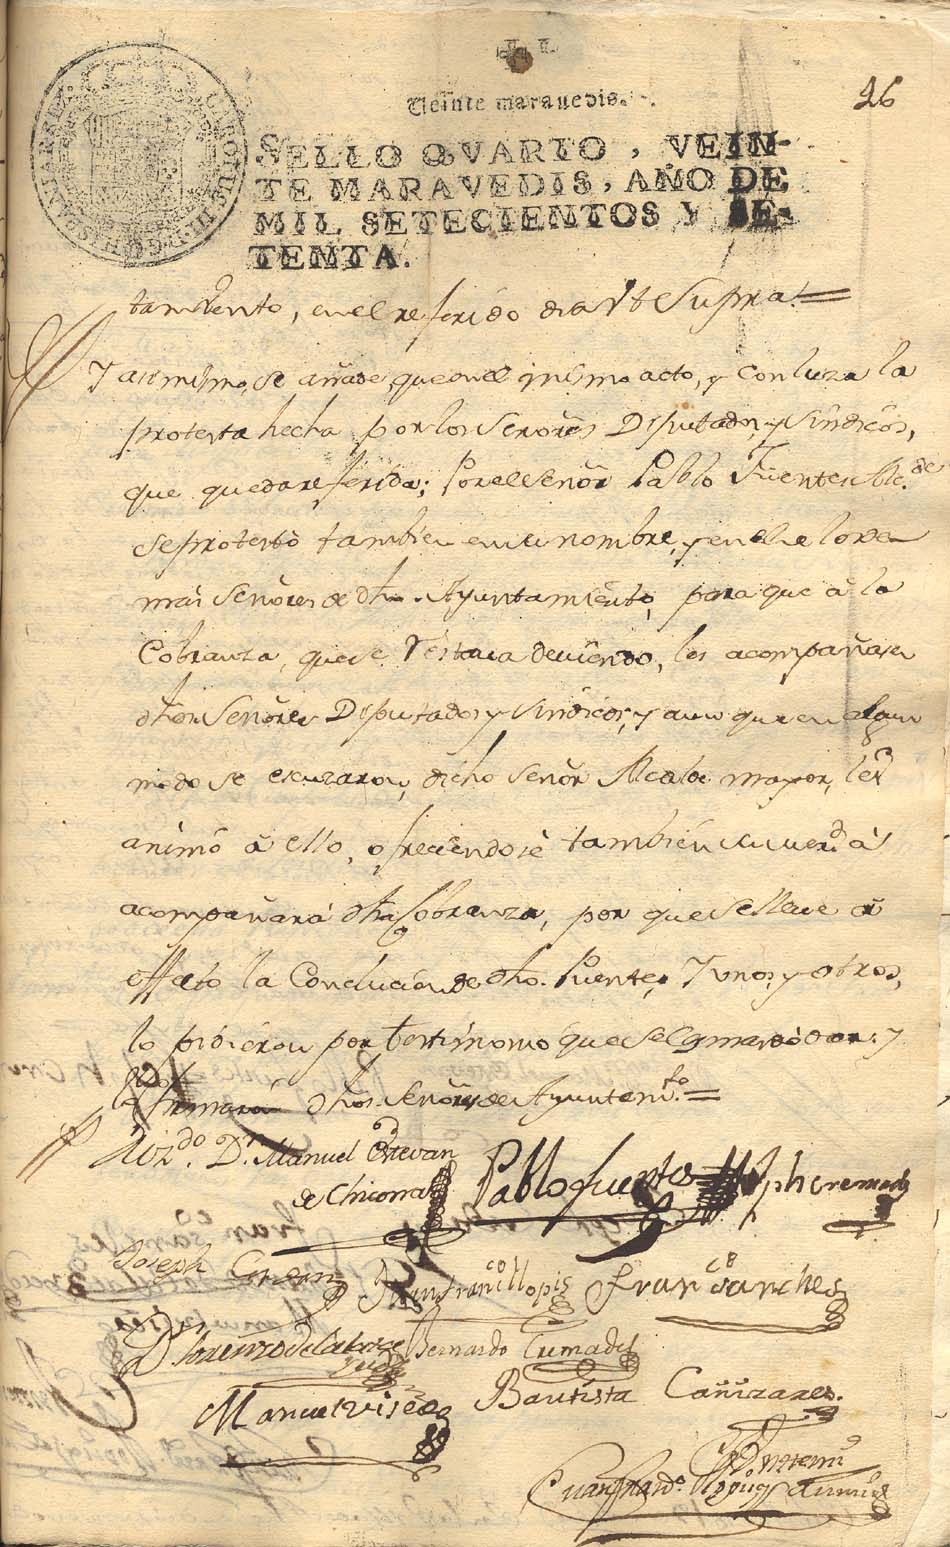 26
Veinte maravedis.
CAROLUS III D G HISPANIAR REX
SELLO QVARTO, VEIN-
TE MARAVEDIS, AÑO DE
MIL SETECIENTOS Y SE-
TENTA.
tamiento, en el referido dia Vt Supra.=
Y asimismo, se añade, que en el mismo acto, y con la
protesta hecha por los Señores Diputados, y Síndicos,
que queda referida; Por el Señor Pablo Fuentes Alc.de
se protestò tambien en su nombre, y en el de los de
mas Señores de dho. Ayuntamiento, para que à la
Cobranza, que se restava deviendo, los acompañasen
dhos Señores Diputados y Síndicos, y aunque en algun
modo se escuzaron, dicho Señor Alcalde mayor, les
animò â ello, ofreciendose tambien su merd. â
acompañar â dha Cobranza, por que se lleve â
effecto la Conducion de dho. Puente, Y unos, y otros,
lo pidieron por testimonio que se les mandò dar: y
lo firmaron dhos Señores de Ayuntamto.=
Lizdo. Dn. Manuel Estevan
de Chicorra
Pablo fuentes
Jph cremades
Joseph Cerdan
Juan Franco. llopis
Franco Sanches
Dn. Lorenzo de
Bernardo Cumades
Manuel Viseo
Bautista Cañizares.
Ante mi
Juan